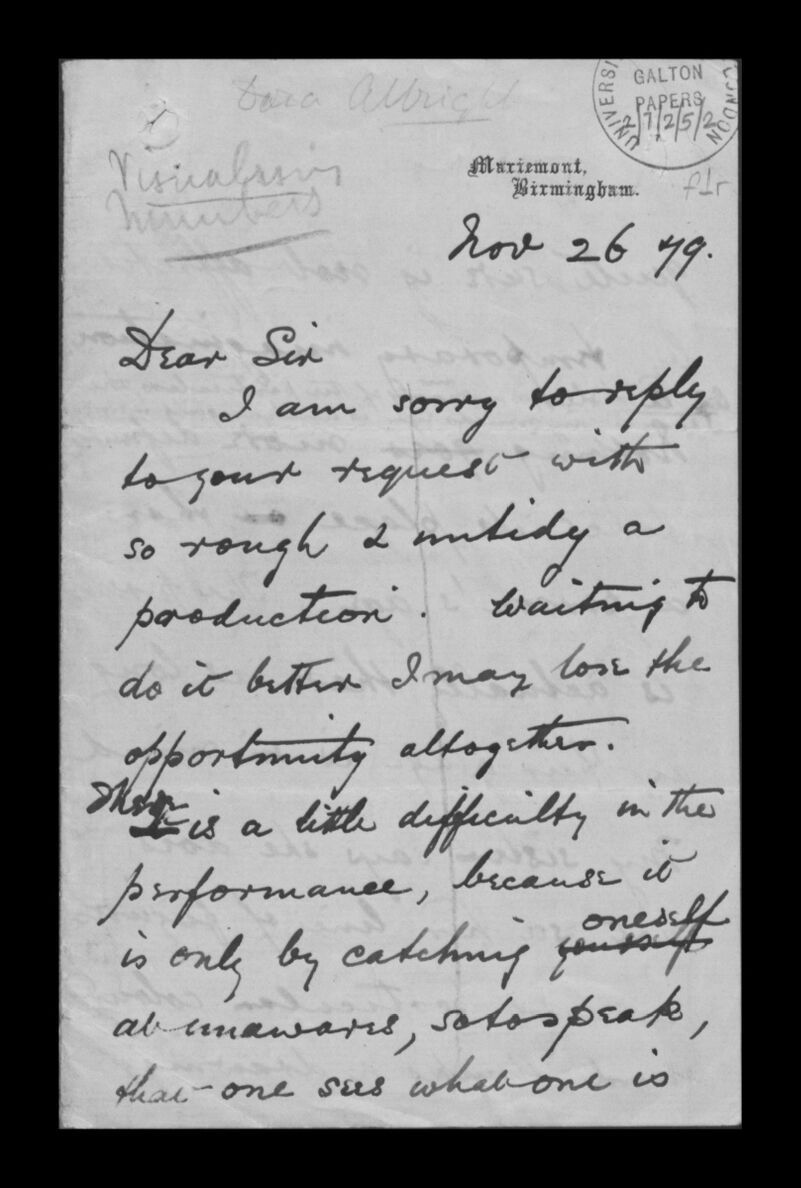 Dora Albright
UNIVERSI
GALTON
PAPERS
2/7/2/5/2
LONDON
Visualising
Numbers
Mariemont,
Birmingham.
f1r
Nov 26 79.
Dear Sir
I am sorry to reply
to your request with
so rough & untidy a
production. Waiting to
do it better I may lose the
opportunity altogether.
There
It is a little difficulty in the
performance, because it
oneself
is only by catching yourself
at unawares, so to speak,
that one sees what one is